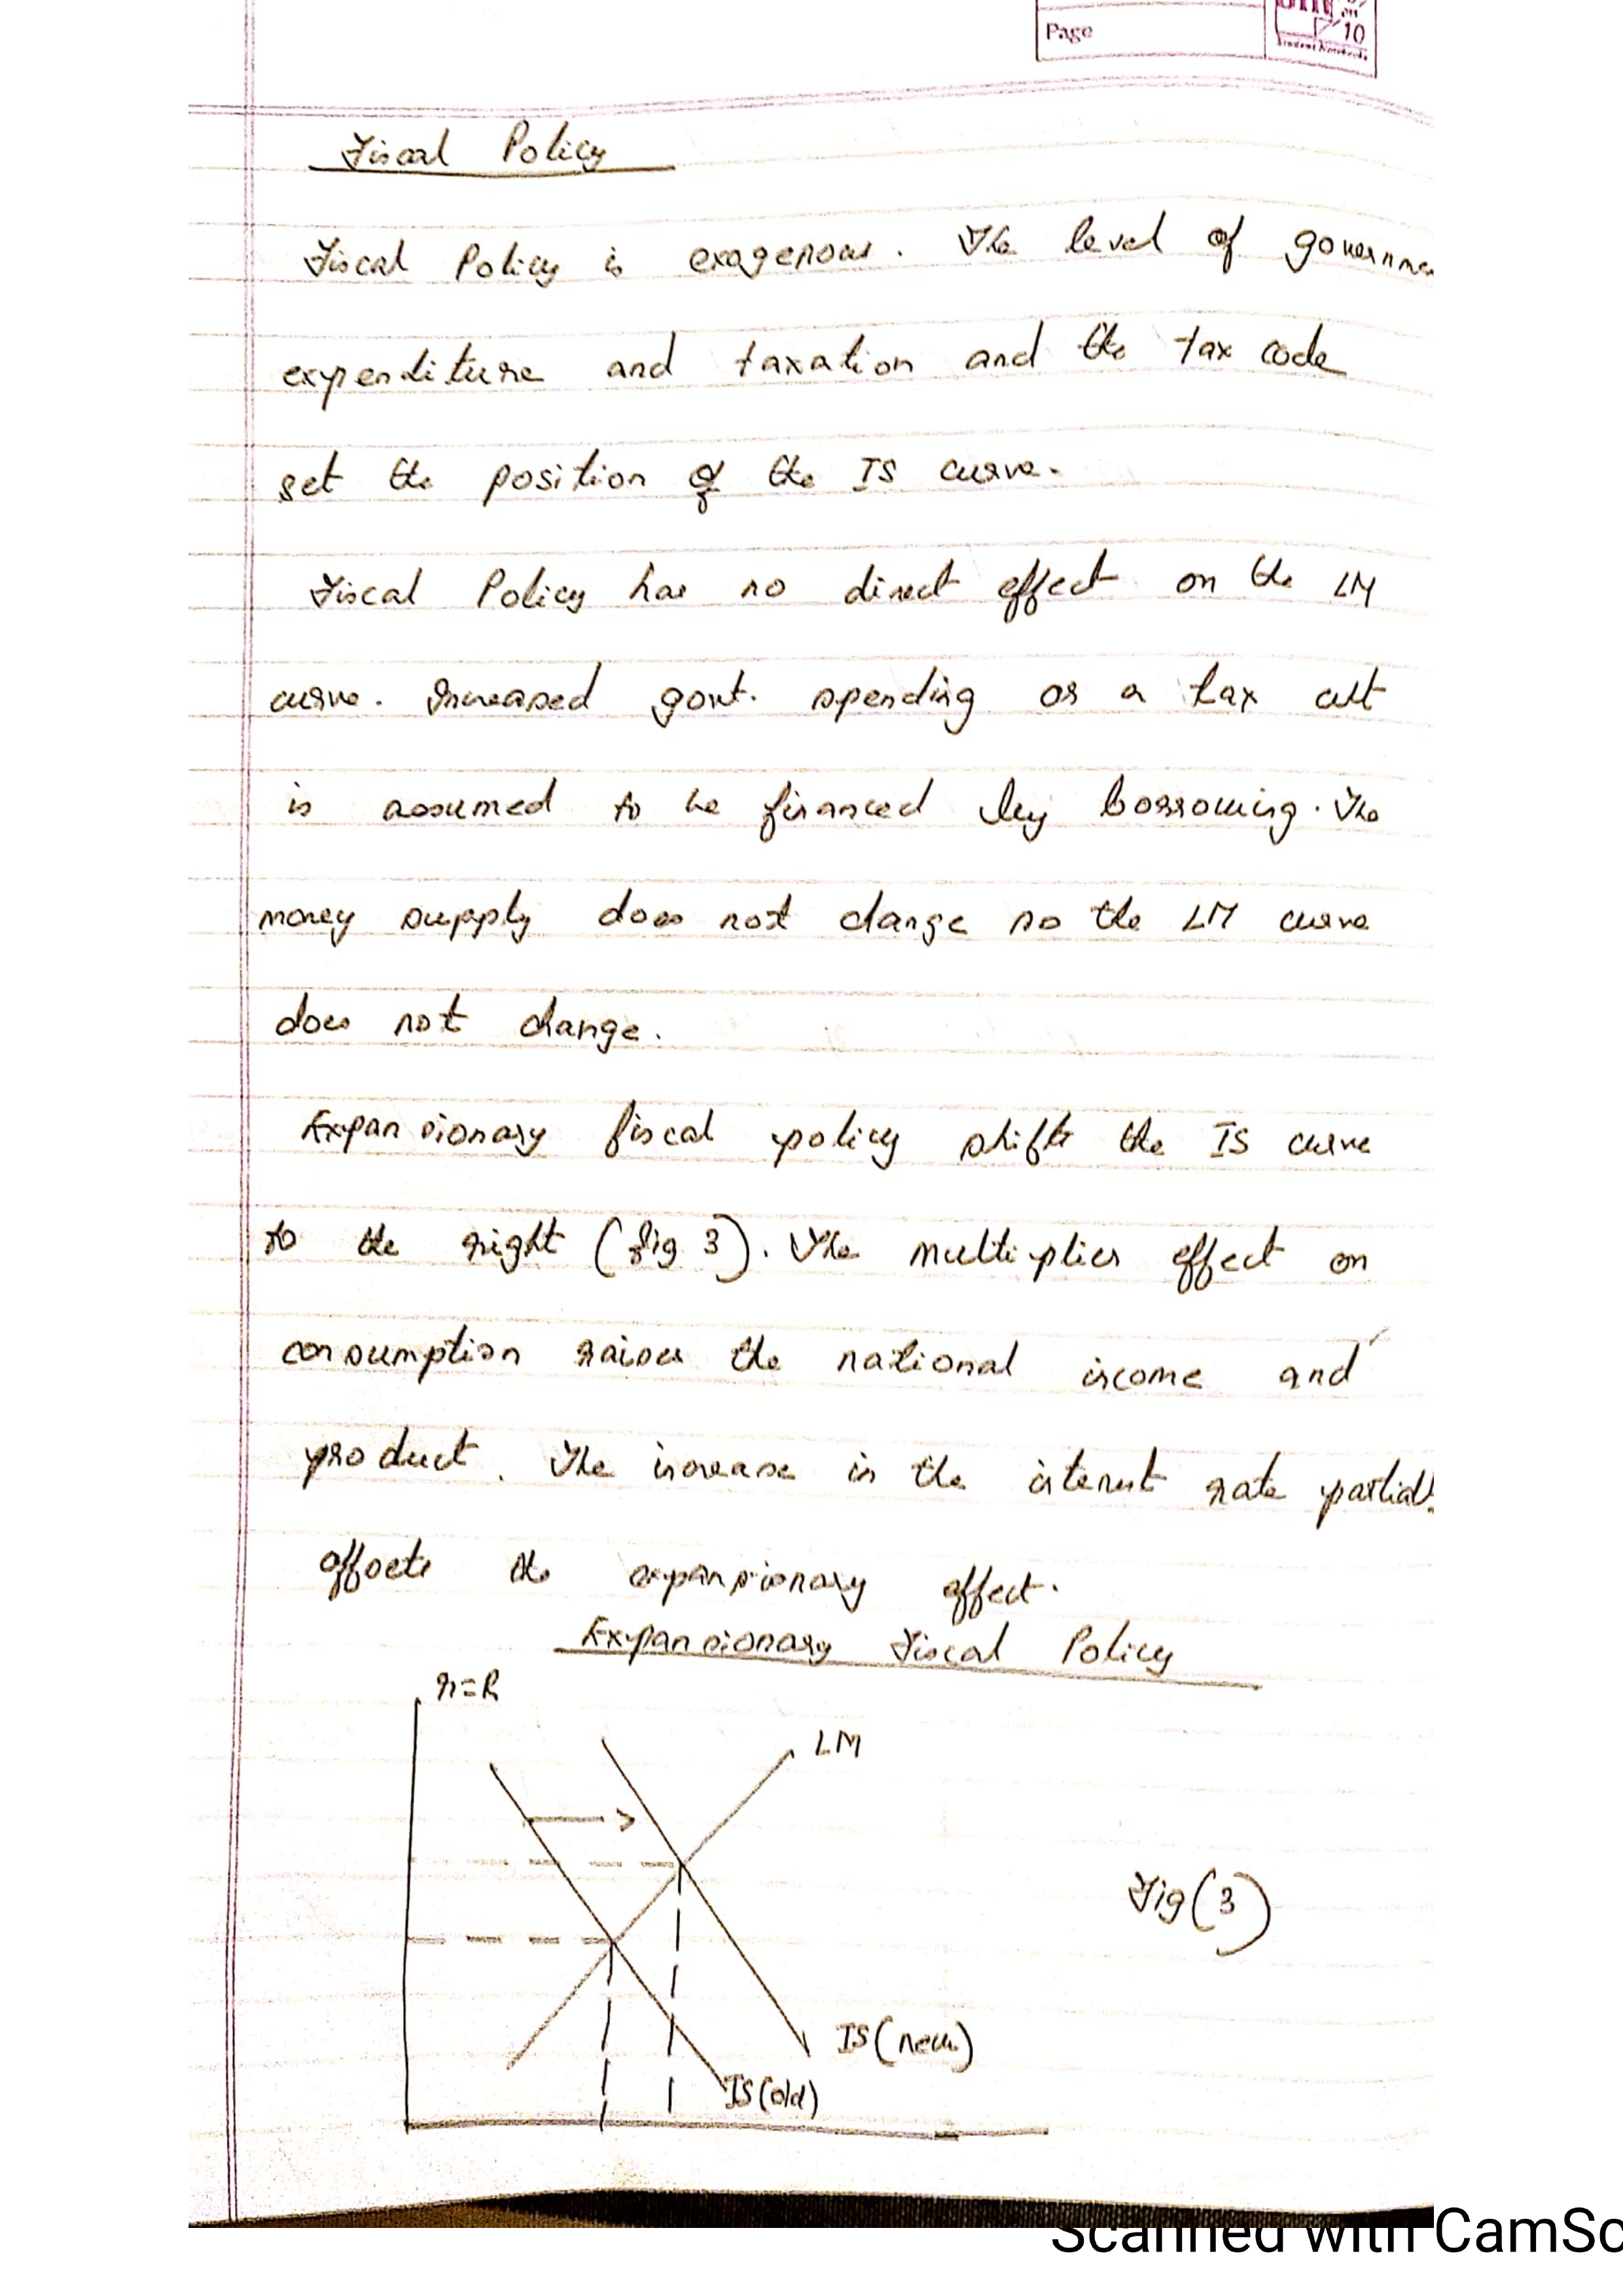 Page
10
Student Notebooks
Fiscal Policy
Fiscal Policy is exogenous. The level of governme
expenditure and taxation and the tax code
set the position of the IS curve.
Fiscal Policy has no direct effect on the LM
curve. Increased govt. spending or a tax cut
is assumed to be financed by borrowing. The
money supply does not change so the LM curve
does not change.
Expansionary fiscal policy shifts the IS curve
to the right (fig 3). The multiplier effect on
consumption raises the national income and
product. The increase in the interest rate partiall
offsets the expansionary effect.
Expansionary Fiscal Policy
r=R
LM
Fig(3)
IS(new)
IS(old)
Scanned with CamSc